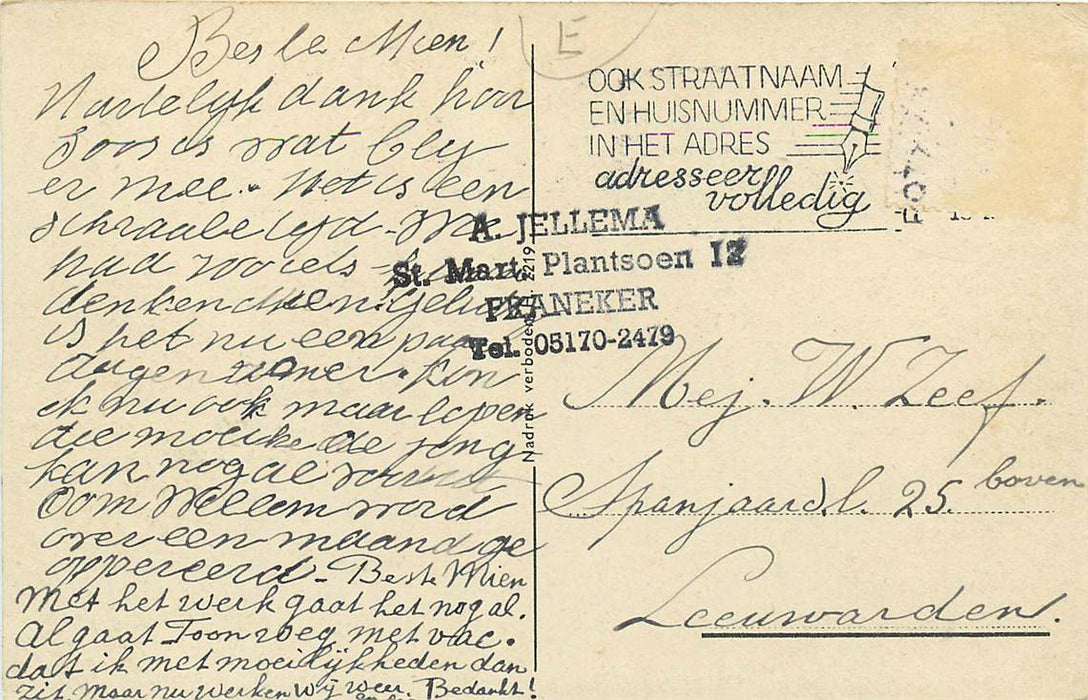 Beste Mien!
Hartelijk dank hoor
er mee. Het is een
schraale tyd - We
had
denken Mien! Geluk
is het nu een paar
dagen zomer. Kon
ik nu ook maar lopen
die moeike de jong
kan nog al
Oom Willem word
over een maand ge
oppereerd - Beste Mien
Met het werk gaat het nog al.
Al gaat Toon weg met vac.
dat ik met moeilijkheden dan
zit, maar nu werken wij weer. Bedankt!
E
OOK STRAATNAAM
EN HUISNUMMER
IN HET ADRES
adresseer
volledig
A. JELLEMA
St. Mart. Plantsoen 12
FRANEKER
Tel. 05170-2479
Nadruk verboden 2219
Mej. W. Zeef.
Spanjaardl. 25 boven
Leeuwarden.